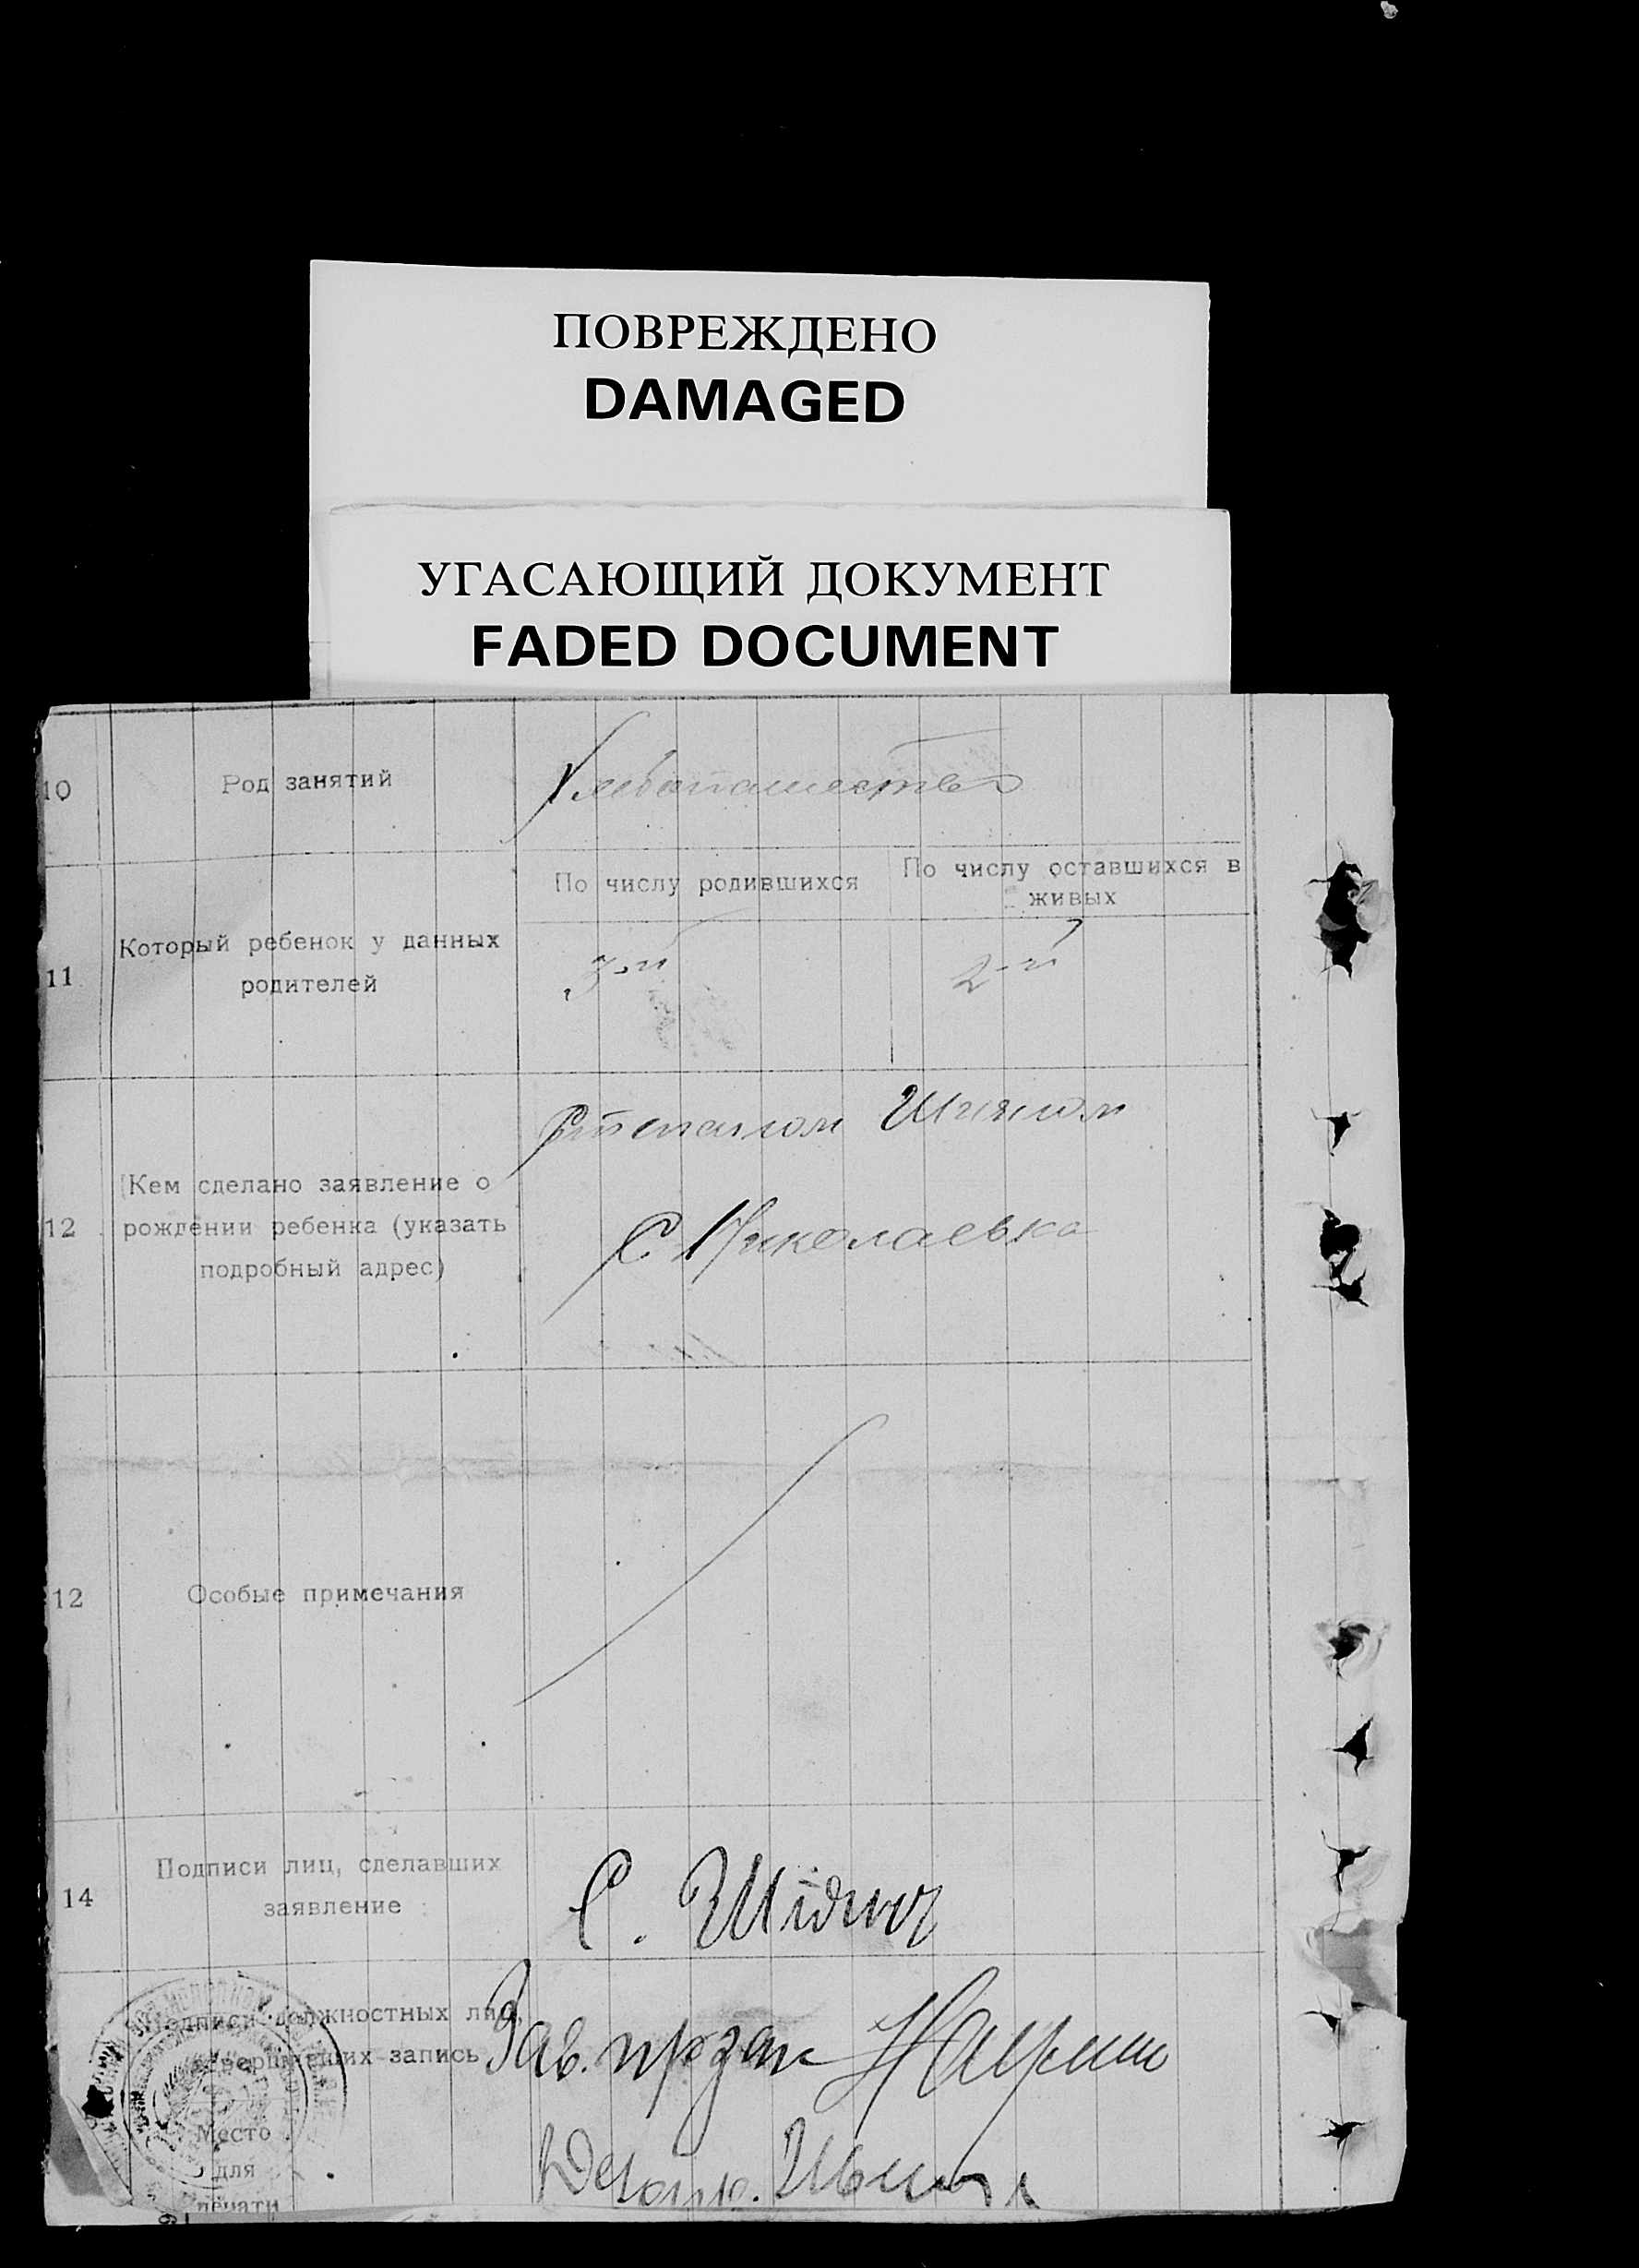 ПОВРЕЖДЕНО
DAMAGED
УГАСАЮЩИЙ ДОКУМЕНТ
FADED DOCUMENT
10 Род занятий Хлебопашество
По числу родившихся По числу оставшихся в
живых
Который ребенок у данных
11 родителей 3-й 2-й
Степаном
Кем сделано заявление о
12 рождении ребенка (указать С Николаевка
подробный адрес)
12 Особые примечания
Подписи лиц, сделавших
14 заявление С.
Подписи должностных лиц,
совершивших запись Зав.
Место
для
печати